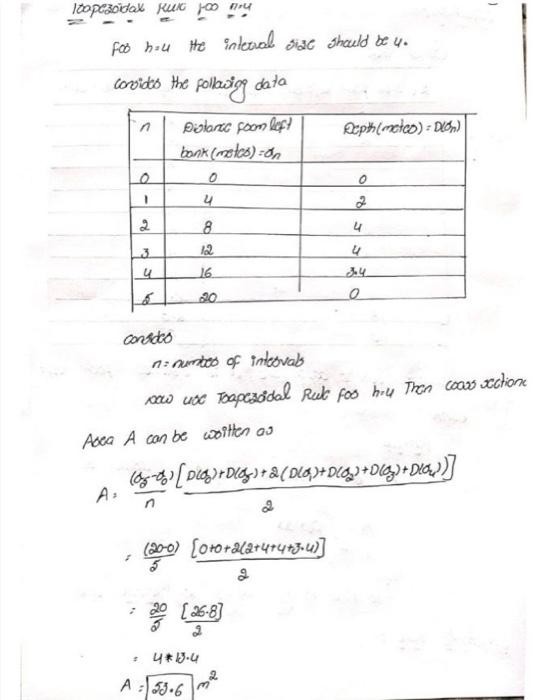 Trapezoidal Rule for h=4
for h=4 the interval size should be 4.
consider the following data
n | Distance from left bank (metres) = xn | Depth (metres) = D(xn)
0 | 0 | 0
1 | 4 | 2
2 | 8 | 4
3 | 12 | 4
4 | 16 | 3.4
5 | 20 | 0
consider
n = number of intervals
now use Trapezoidal Rule for h=4 Then cross section
Area A can be written as
A = (x5-x0)/n [D(x0)+D(x5)+2(D(x1)+D(x2)+D(x3)+D(x4))]/2
= (20-0)/5 [0+0+2(2+4+4+3.4)]/2
= 20/5 [26.8]/2
= 4*13.4
A = 53.6 m²